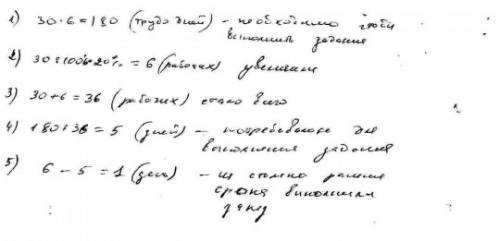 1) 30·6=180 (трудо дней) – необходимо чтобы
выполнить задание
2) 30:100%·20% = 6 (рабочих) увеличили
3) 30+6=36 (рабочих) стало всего
4) 180:36=5 (дней) – потребовалось для
выполнения задания
5) 6-5=1 (день) – на столько раньше
срока выполнили